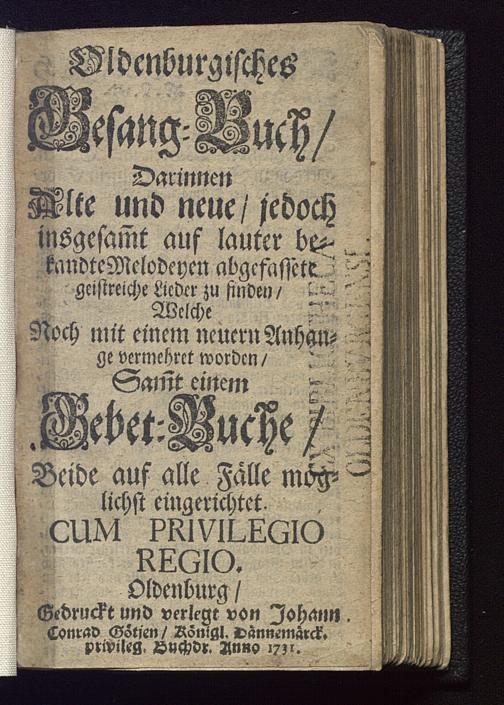 Oldenburgisches
Gesang-Buch/
Darinnen
Alte und neue/ jedoch
insgesam̃t auf lauter be-
kandte Melodeyen abgefassete
geistreiche Lieder zu finden/
Welche
Noch mit einem neuern Anhan-
ge vermehret worden/
Sam̃t einem
Gebet-Buche/
Beide auf alle Fälle mög-
lichst eingerichtet.
CUM PRIVILEGIO
REGIO.
Oldenburg/
Gedruckt und verlegt von Johann
Conrad Götjen/ Königl. Dännemärck.
privileg. Buchdr. Anno 1731.
EX BIBLIOTHECA
OLDENBURGENSI.